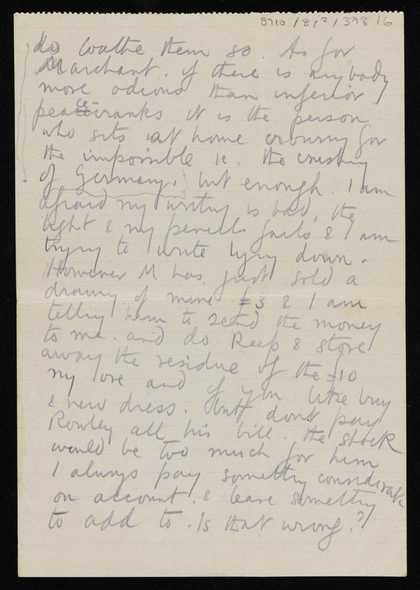 8710/8/2/398 16
do loathe them so. As for
Marchant. if there is anybody
more odious than inferior
peace cranks it is the person
who sits at home crowing for
the impossible ie. the crushing
of Germany. but enough. I am
afraid my writing is bad, the
light & my pencils fails & I am
trying to write lying down.
However M has just sold a
drawing of mine £3 & I am
telling him to send the money
to me. and do keep & store
away the residue of the £10
my love and if you like buy
a new dress. But dont pay
Rowley all his bill. the shock
would be too much for him
I always pay something considerable
on account & leave something
to add to. Is that wrong?